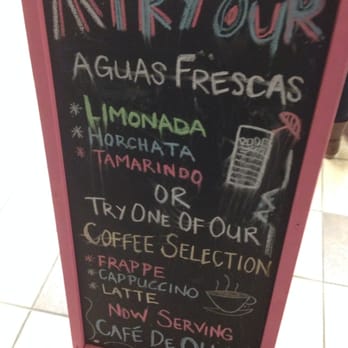 TRY OUR
AGUAS FRESCAS
* LIMONADA
* HORCHATA
* TAMARINDO
OR
TRY ONE OF OUR
COFFEE SELECTION
* FRAPPE
* CAPPUCCINO
* LATTE
NOW SERVING
CAFÉ DE